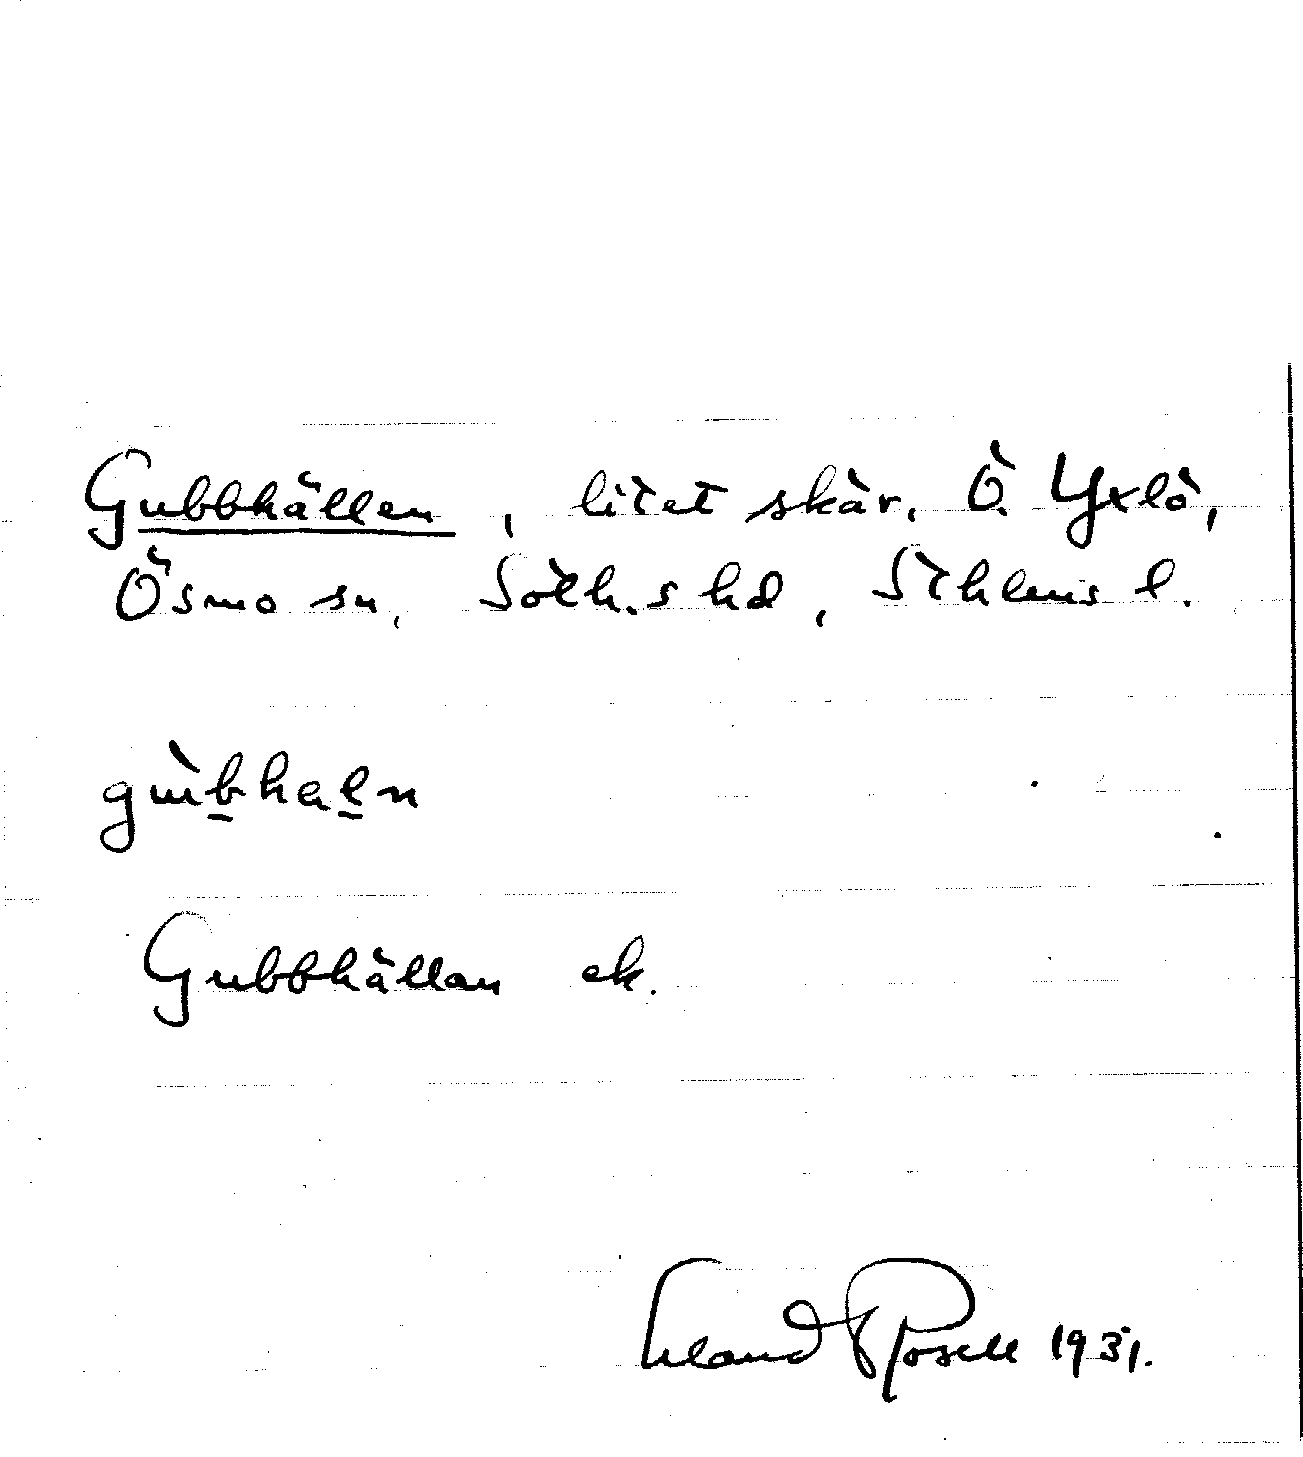 Gubbhällen, litet skär, Ö. Yxlö,
Ösmo sn, Soth.s hd, Sthlms l.
gùbhaln
Gubbhällan ek.
Erland Rosell 1931.